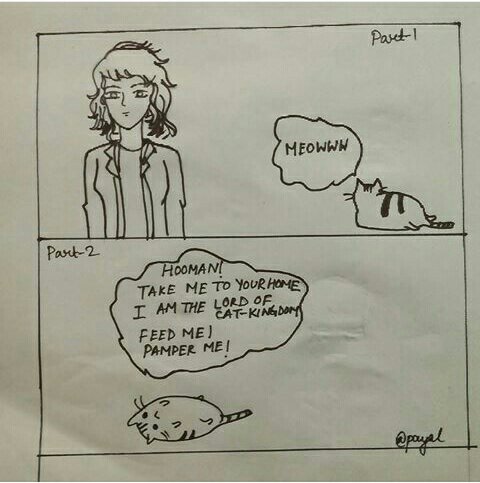 Part-1
MEOWWW
Part-2
HOOMAN!
TAKE ME TO YOUR HOME
I AM THE LORD OF
CAT-KINGDOM
FEED ME!
PAMPER ME!
@payal